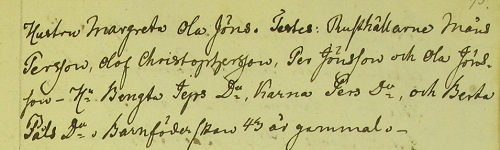 Hustru Margreta Ola Jöns. Testes: Rusthållarne Måns
Persson, Olof Christophersson, Per Jönsson och Ola Jöns-
son – Hu. Bengta Jeps Dr, Karna Pers Dr, och Berta
Påls Dr. Barnföderskan 43 år gammal. –